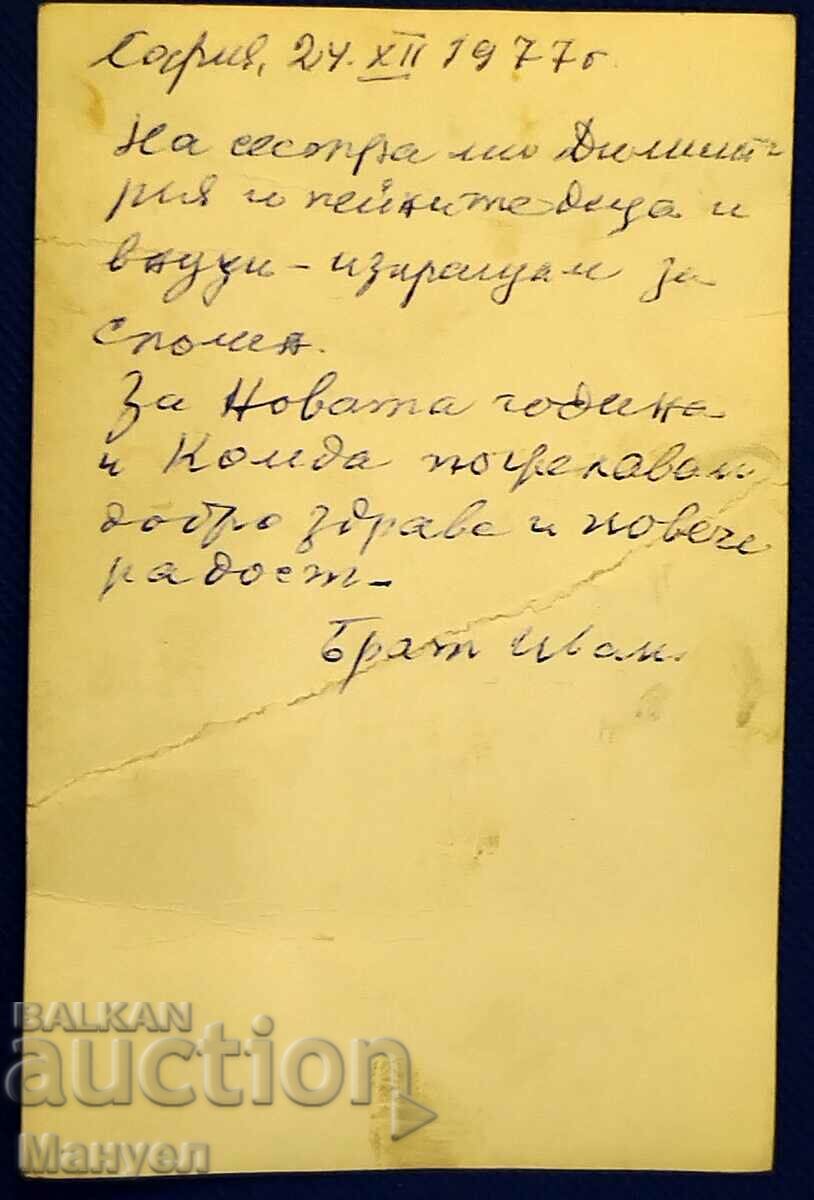 София, 24. XII 1977г.
На сестра ми Димит-
рия и нейните деца и
внуци - изпращам за
спомен.
За Новата година
и Коледа пожелавам
добро здраве и повече
радост -
Брат Иван.
BALKAN
auction
Мануел